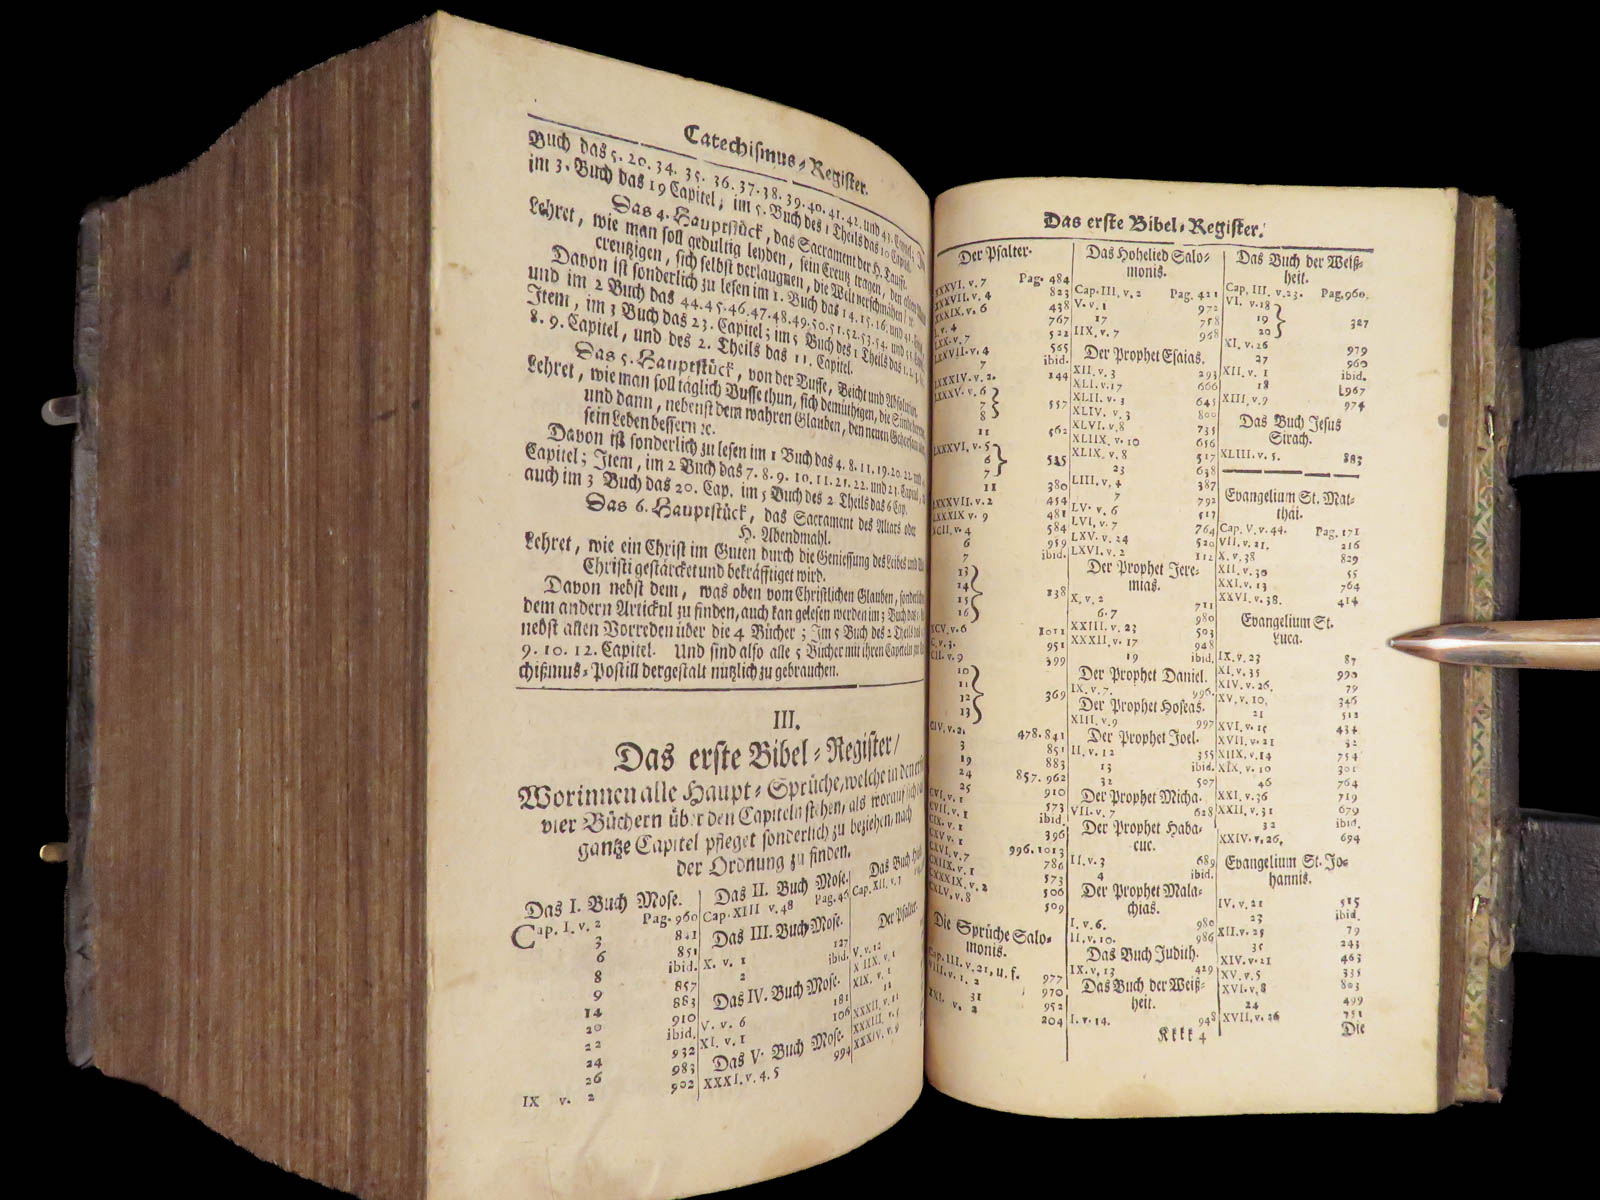 Catechismus-Register.
Buch das 5. 20. 34. 35. 36. 37. 38. 39. 40. 41. 42. und 43.
im 3. Buch das 19 Capitel; im 5. Buch des 1 Theils das 10
Das 4. Hauptstück, das Sacrament der H. Tauff.
Lehret, wie man soll gedultig leyden, sein Creutz tragen, den alten
creutzigen, sich selbst verlaugnen, die Welt verschmähen
Davon ist sonderlich zu lesen im 1. Buch das 14. 15. 16. und 41.
und im 2 Buch das 44. 45. 46. 47. 48. 49. 50. 51. 52. 53. 54. und
Item, im 3 Buch das 23. Capitel; im 5 Buch des 1 Theils das 1. 2.
8. 9. Capitel, und des 2. Theils das 11. Capitel.
Das 5. Hauptstück, von der Busse, Beicht und Absolution.
Lehret, wie man soll täglich Busse thun, sich demüthigen, die Sünde
und dann, nebenst dem wahren Glauben, den neuen
sein Leben bessern ꝛc.
Davon ist sonderlich zu lesen im 1 Buch das 4. 8. 11. 19. 20. 22.
Capitel; Item, im 2 Buch das 7. 8. 9. 10. 11. 21. 22. und 23. Capitel,
auch im 3 Buch das 20. Cap. im 5 Buch des 2 Theils das 6 Cap.
Das 6. Hauptstück, das Sacrament des Altars oder
H. Abendmahl.
Lehret, wie ein Christ im Guten durch die Geniessung des Leibes und
Christi gestärcket und bekräfftiget wird.
Davon nebst dem, was oben vom Christlichen Glauben,
dem andern Artickul zu finden, auch kan gelesen werden im 3 Buch das
nebst allen Vorreden über die 4 Bücher; Im 5 Buch des 2 Theils
9. 10. 12. Capitel. Und sind also alle 5 Bücher mit ihren Capiteln
chißmus-Postill dergestalt nützlich zu gebrauchen.
III.
Das erste Bibel-Register/
Worinnen alle Haupt-Sprüche, welche in den
vier Büchern über den Capiteln stehen, als worauf
gantze Capitel pfleget sonderlich zu beziehen/ nach
der Ordnung zu finden.
Das I. Buch Mose.
Cap. I. v. 2 Pag. 960
3 841
6 851
8 ibid.
9 857
14 883
20 910
22 ibid.
24 932
26 983
IX v. 2 902
Das II. Buch Mose.
Cap. XIII v. 48 Pag. 46
Das III. Buch Mose.
X. v. 1 127
2 ibid.
Das IV. Buch Mose.
V. v. 6 181
XI. v. 1 106
Das V. Buch Mose.
XXXI. v. 4. 5 994
Das Buch
Cap. XII. v. 1
Der Psalter.
V. v. 12
XIIX. v. 1
XIX. v. 1
11
XXXII. v. 11
XXXIII. v. 5
XXXIV. v. 9
Das erste Bibel-Register.
Der Psalter.
XXXVI. v. 7 Pag. 484
XXXVII. v. 4 823
XXXIX. v. 6 438
v. 4 767
v. 7 522
LXXVII. v. 4 565
7 ibid.
LXXXIV. v. 2. 144
LXXXV. v. 6
7 557
8
11 562
LXXXVI. v. 5
6 535
7
11 380
LXXXVII. v. 2 454
LXXXIX v. 9 481
XCII. v. 4 584
6 959
7 ibid.
13
14 838
15
16
XCV. v. 6 1011
C. v. 3. 951
CII. v. 9 399
10
11
12 369
13
CIV. v. 2. 478. 841
3 851
19 883
24 857. 962
25 910
CVI. v. 1 573
CVII. v. 1 ibid.
CIX. v. 1 396
CXV v. 1 996. 1013
CXVI. v. 7 786
CXIIX. v. 1 573
CXXXIX. v. 2 506
CXLV. v. 8 509
Die Sprüche Salo-
monis.
Cap. III. v. 21, u. f. 977
VIII. v. 1. 2 970
31 952
XXI. v. 2 204
Das Hohelied Salo-
monis.
Cap. III. v. 2 Pag. 421
V. v. 1 972
17 758
IIX. v. 7 968
Der Prophet Esaias.
XII. v. 3 293
XLI. v. 17 666
XLII. v. 3 645
XLIV. v. 3 800
XLVI. v. 8 735
XLIIX. v. 10 656
XLIX. v. 8 517
23 638
LIII. v. 4 387
7 792
LV. v. 6 517
LVI. v. 7 764
LXV. v. 24 520
LXVI. v. 2 112
Der Prophet Jere-
mias.
X. v. 2 711
6. 7 980
XXIII. v. 23 503
XXXII. v. 17 948
19 ibid.
Der Prophet Daniel.
IX. v. 7. 996.
Der Prophet Hoseas.
XIII. v. 9 997
Der Prophet Joel.
II. v. 12 355
13 ibid.
32 507
Der Prophet Micha.
VII. v. 7 628
Der Prophet Haba-
cuc.
II. v. 3 689
4 ibid.
Der Prophet Mala-
chias.
I. v. 6. 980
II. v. 10. 986
Das Buch Judith.
IX. v. 13 429
Das Buch der Weiß-
heit.
I. v. 14. 948
Das Buch der Weiß-
heit.
Cap. III. v. 23. Pag. 960.
VI. v. 18
19 327
20
XI. v. 26 979
27 960
XII. v. 1 ibid.
18 967
XIII. v. 9 974
Das Buch Jesus
Sirach.
XLIII. v. 5. 883
Evangelium St. Mat-
thäi.
Cap. V. v. 44. Pag. 171
VII. v. 21. 216
X. v. 38 829
XII. v. 30 55
XXI. v. 13 764
XXVI. v. 38. 414
Evangelium St.
Luca.
IX. v. 23 87
XI. v. 35 990
XIV. v. 26. 79
XV. v. 10. 346
21 512
XVI. v. 15 434
XVII. v. 21 32
XIIX. v. 14 754
XIX. v. 10 301
46 764
XXI. v. 36 719
XXII. v. 31 679
32 ibid.
XXIV. v. 26. 694
Evangelium St. Jo-
hannis.
IV. v. 21 515
23 ibid.
XII. v. 25 79
35 243
XIV. v. 21 463
XV. v. 5 335
XVI. v. 8 803
24 499
XVII. v. 26 751
Kkkk 4
Die